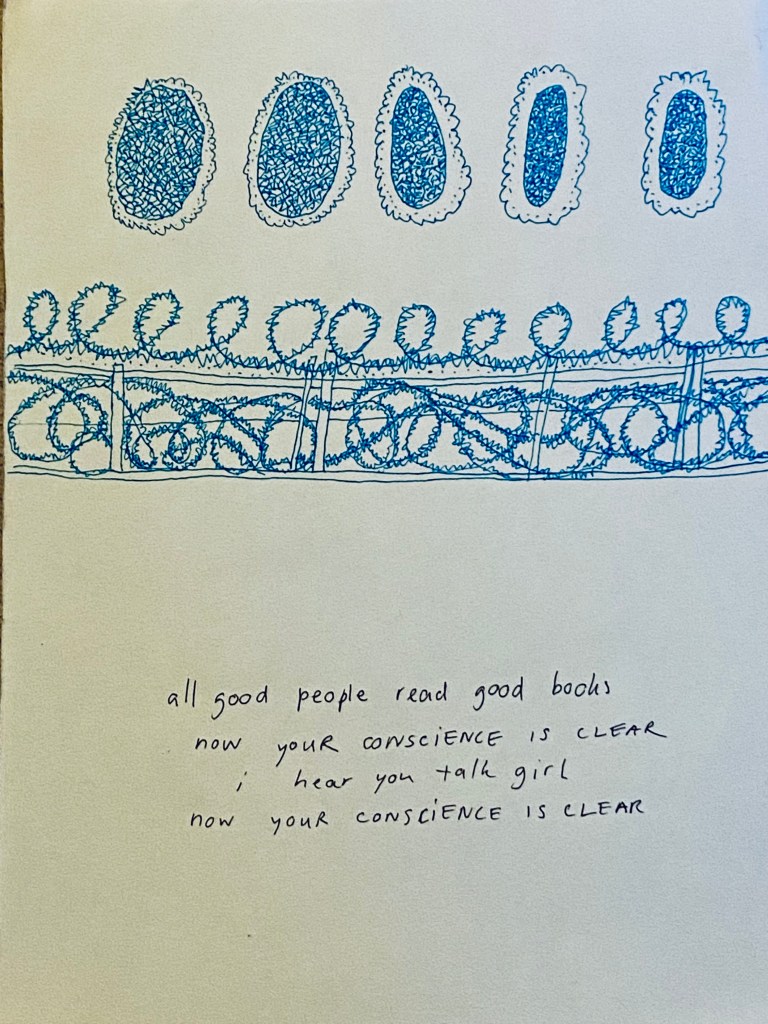 all good people read good books
now your conscience is clear
i hear you talk girl
now your conscience is clear